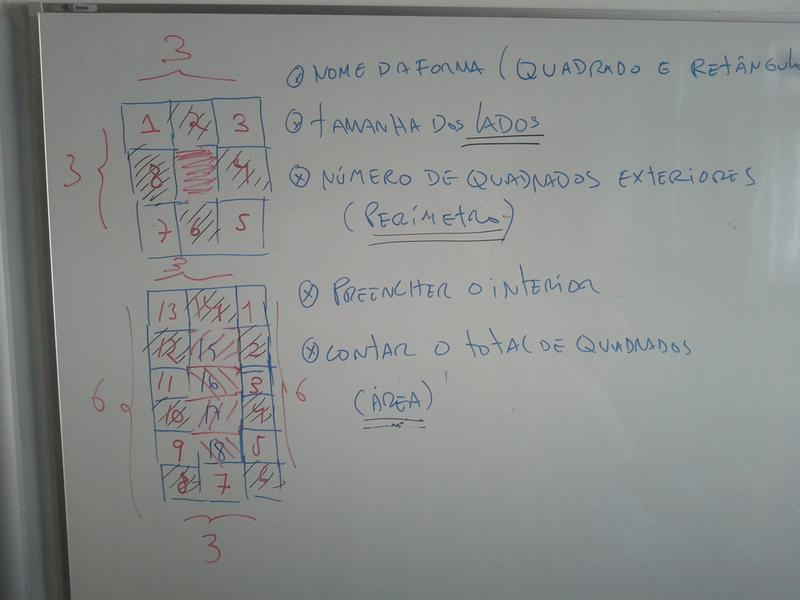 3
⊗ NOME DA FORMA (QUADRADO E RETÂNGULO
⊗ TAMANHA DOS LADOS
⊗ NÚMERO DE QUADRADOS EXTERIORES
(PERÍMETRO)
⊗ PREENCHER O INTERIOR
⊗ CONTAR O TOTAL DE QUADRADOS
(ÁREA)
1 2 3
3
8 4
7 6 5
3
13 14 1
12 15 2
6 11 16 3 6
10 17 4
9 18 5
8 7 6
3